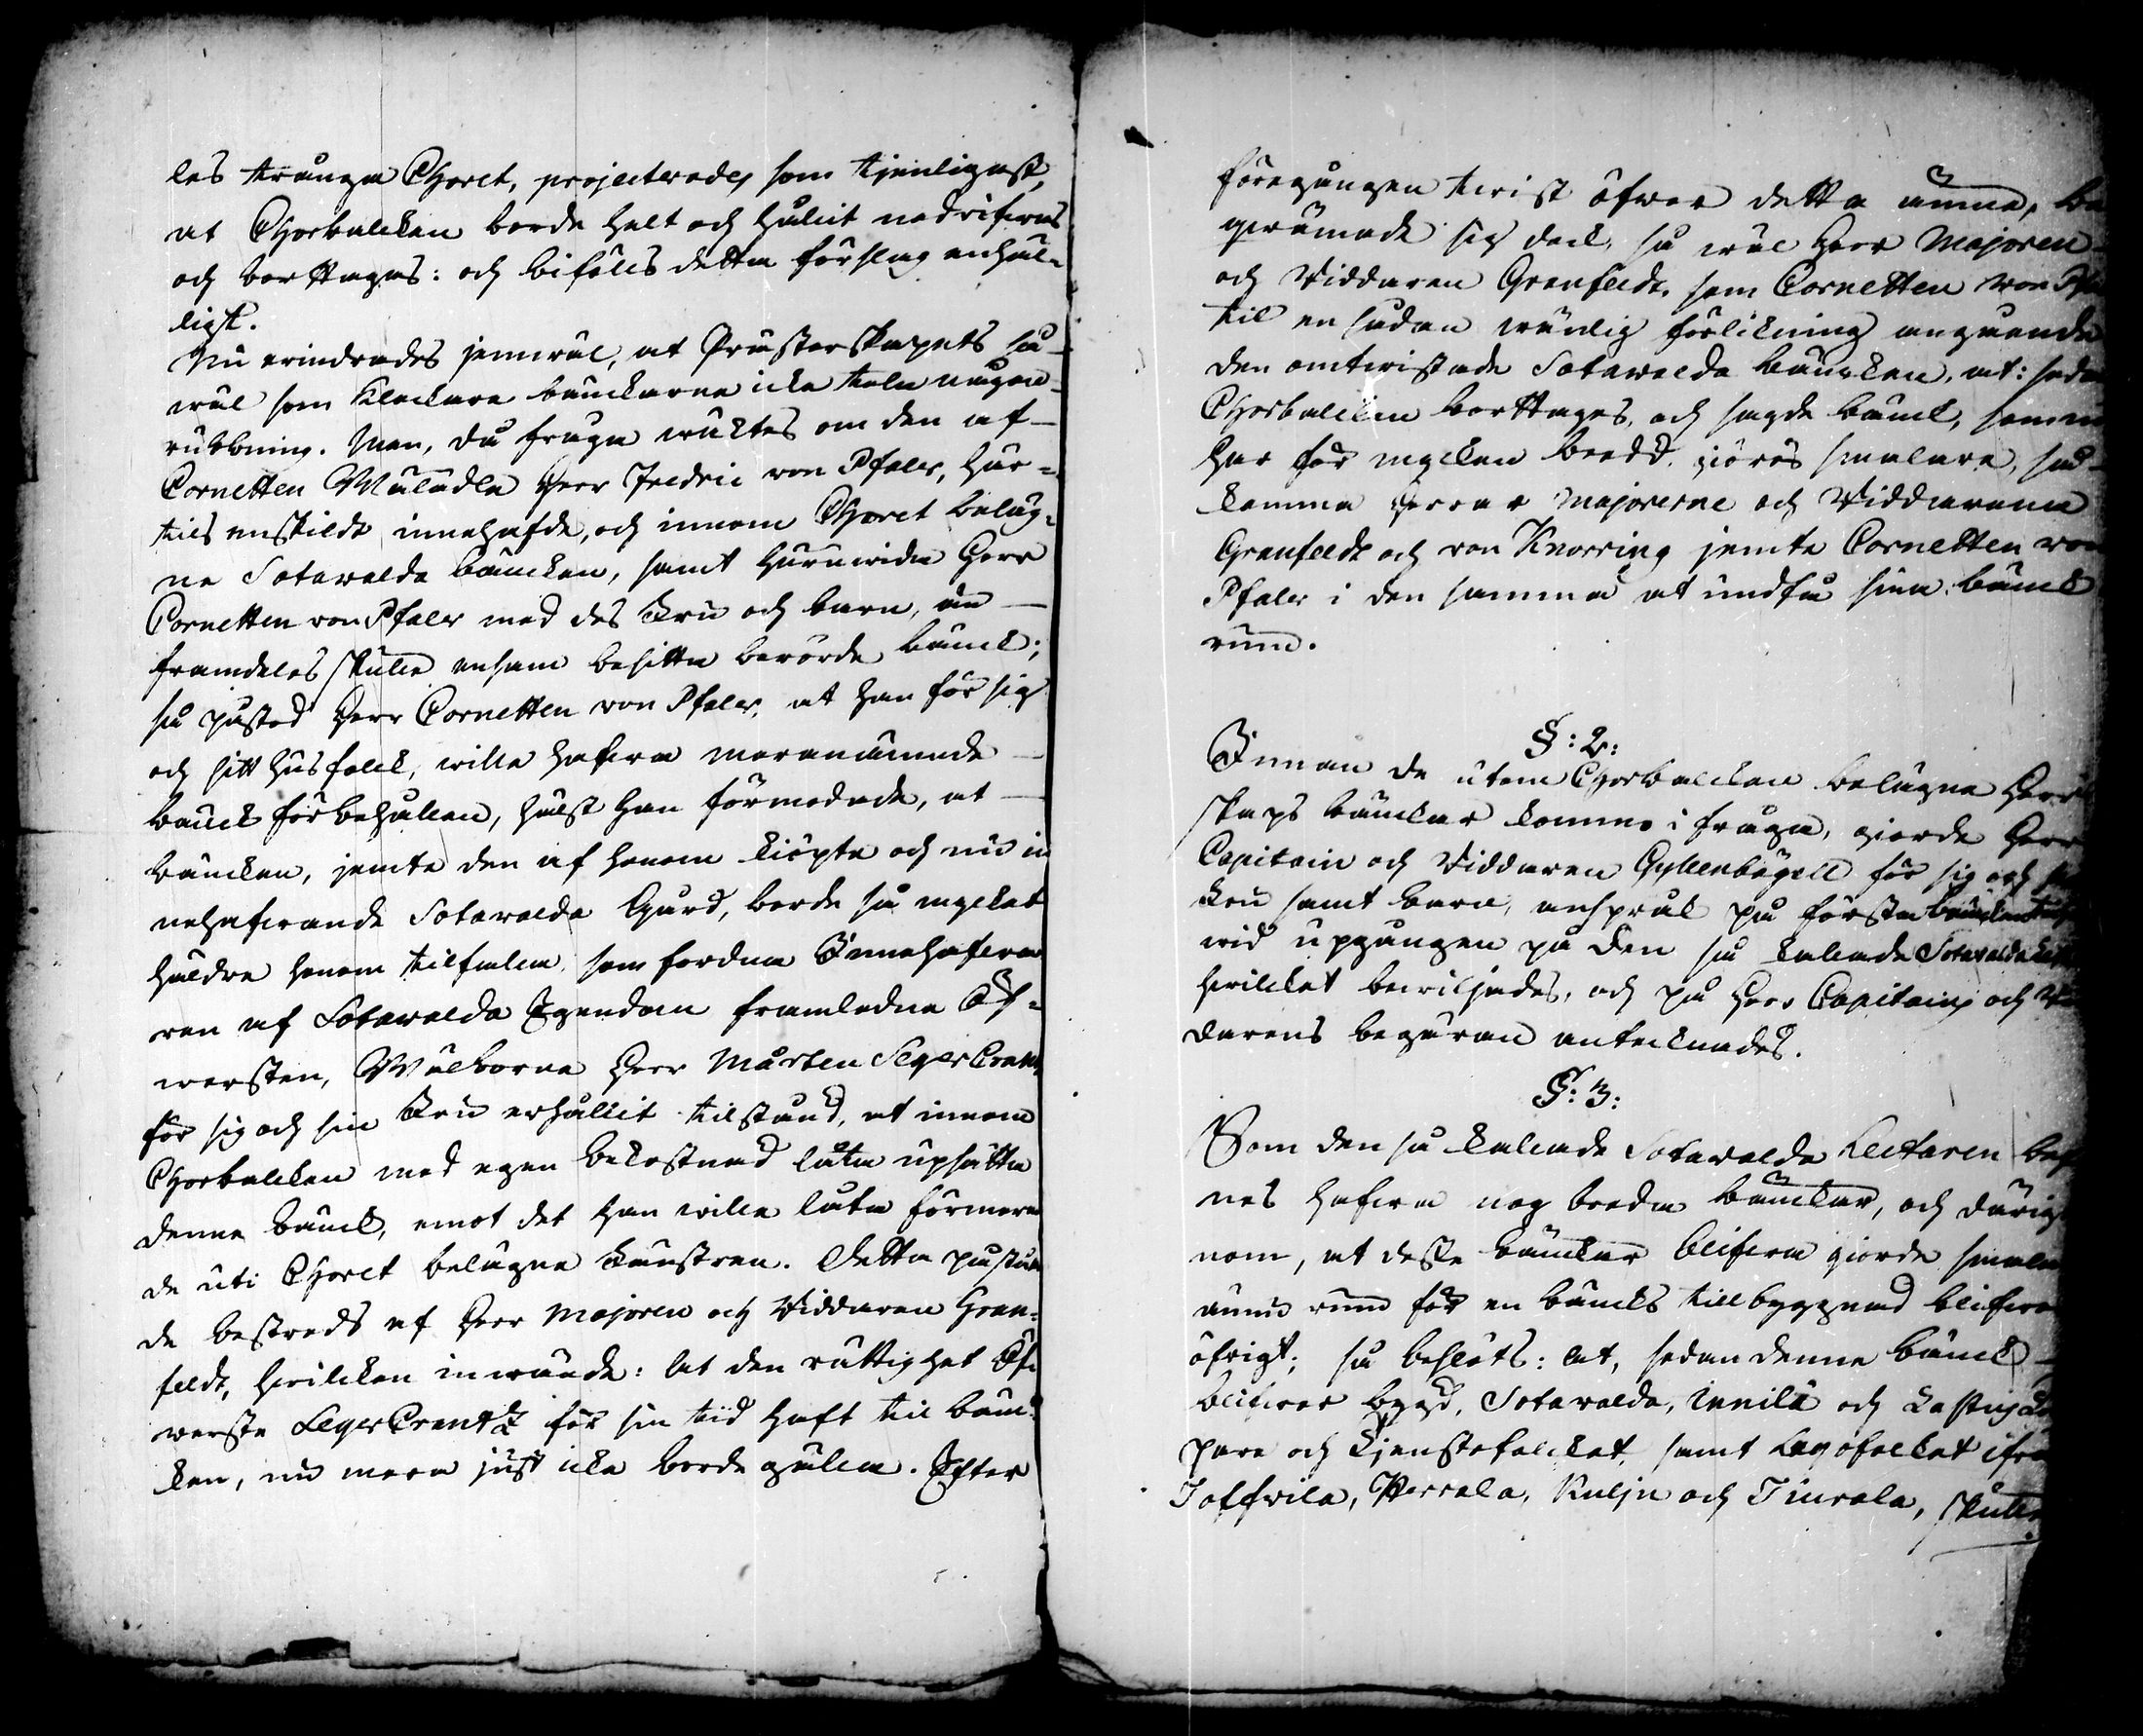 les trånga Choret, projecterades som tjenligast,
at Chorbalcken borde helt och hållit nedrifwas
och borttagas: och biföls detta förslag enhäl-
ligt.
Nu erindrades jemwäl, at Prästerskapets så
wäl som Klockare bänckarne icke tola någon
rubbning. Men, då fråga wäktes om den af
Cornetten Wälädle Herr Fredric von Pfaler, här-
tils enskildt innehafde, och innom Choret beläg-
ne Sotawalda bäncken, samt huruwida Herr
Cornetten von Pfaler med des Fru och barn, än
framdeles skulle ensam besitta berörde bänck;
så påstod Herr Cornetten von Pfaler, at han för sig
och sitt husfolck, wille hafwa merenämnde
bänck förbehållen, hälst han förmodade, at
bäncken, jemte den af honom kiöpta och nu in
nehafwande Sotawalda Gård, borde så mycket
häldre honom tilfalla, som fordna Innehafwa
ren af Sotawalda Egendom framledne Öf-
wersten, Wälborne Herr Mårten LegerCrantz
för sig och sin Fru erhållit tilstånd, at innom
Chorbalcken med egen bekostnad låta upsätta
denne bänck, emot det han wille låta förmera
de uti Choret belägne Fönstren. Detta påståen
de bestreds af Herr Majoren och Riddaren Gran-
feldt, hwilcken inwände: at den rättighet Öf
werste LegerCrantz för sin tid haft til bän
ken, nu mera just icke borde gälla. Efter
föregången twist öfwer detta ämne, be
qwämade sig dock, så wäl Herr Majoren
och Riddaren Granfeldt, som Cornetten von Pfaler
til en sådan wänlig förlikning angående
den omtwistade Sotawalda bäncken, at: sedan
Chorbalcken borttages, och sagde bänck, som nu
har för mycken bredd, giöres smalare, så
komma Herrar Majorerne och Riddarena
Granfeldt och von Knorring jemte Cornetten von
Pfaler i den samma at undfå sina bänck
rum.
§: 2:
Innan de utom Chorbalcken belägne Herr
skaps bänckar kommo i fråga, giorde Herr
Capitain och Riddaren Gyllenbögell för sig och sin
Fru samt barn, anspråk på första bäncken
wid upgången på den så kallade Sotawalda
hwilcket bewiljades, och på Herr Capitains och Rid
darens begäran antecknades.
§: 3:
Som den så kallade Sotawalda Lectaren bef
nes hafwa nog breda bänckar, och därige
nom, at desse bänckar blifwa giorde smala
ännu rum för en bäncks tillbyggnad blifwa
öfrigt; så beslöts: at, sedan denne bänck
blifwer bygd, Sotawalda, Innilä och
pare och tjenstefolcket, samt Legofolcket ifrån
Toffwila, Herrala, Kulju och Tiurala, skulle